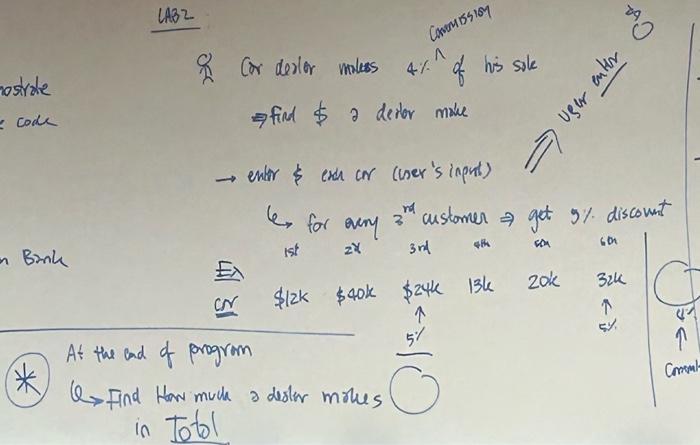 LAB2
Car dealer makes 4% ^ of his sale
Commission
⇒ find $ a dealer make
user enter
→ enter $ each car (user's input)
↳ for every 3rd customer ⇒ get 5% discount
code
Bank
Ex
1st 2nd 3rd 4th 5th 6th
car $12k $40k $24k 13k 20k 32k
↑ ↑
5% 5%
4%
↑
* At the end of program
↳ Find How much a dealer makes
in Total